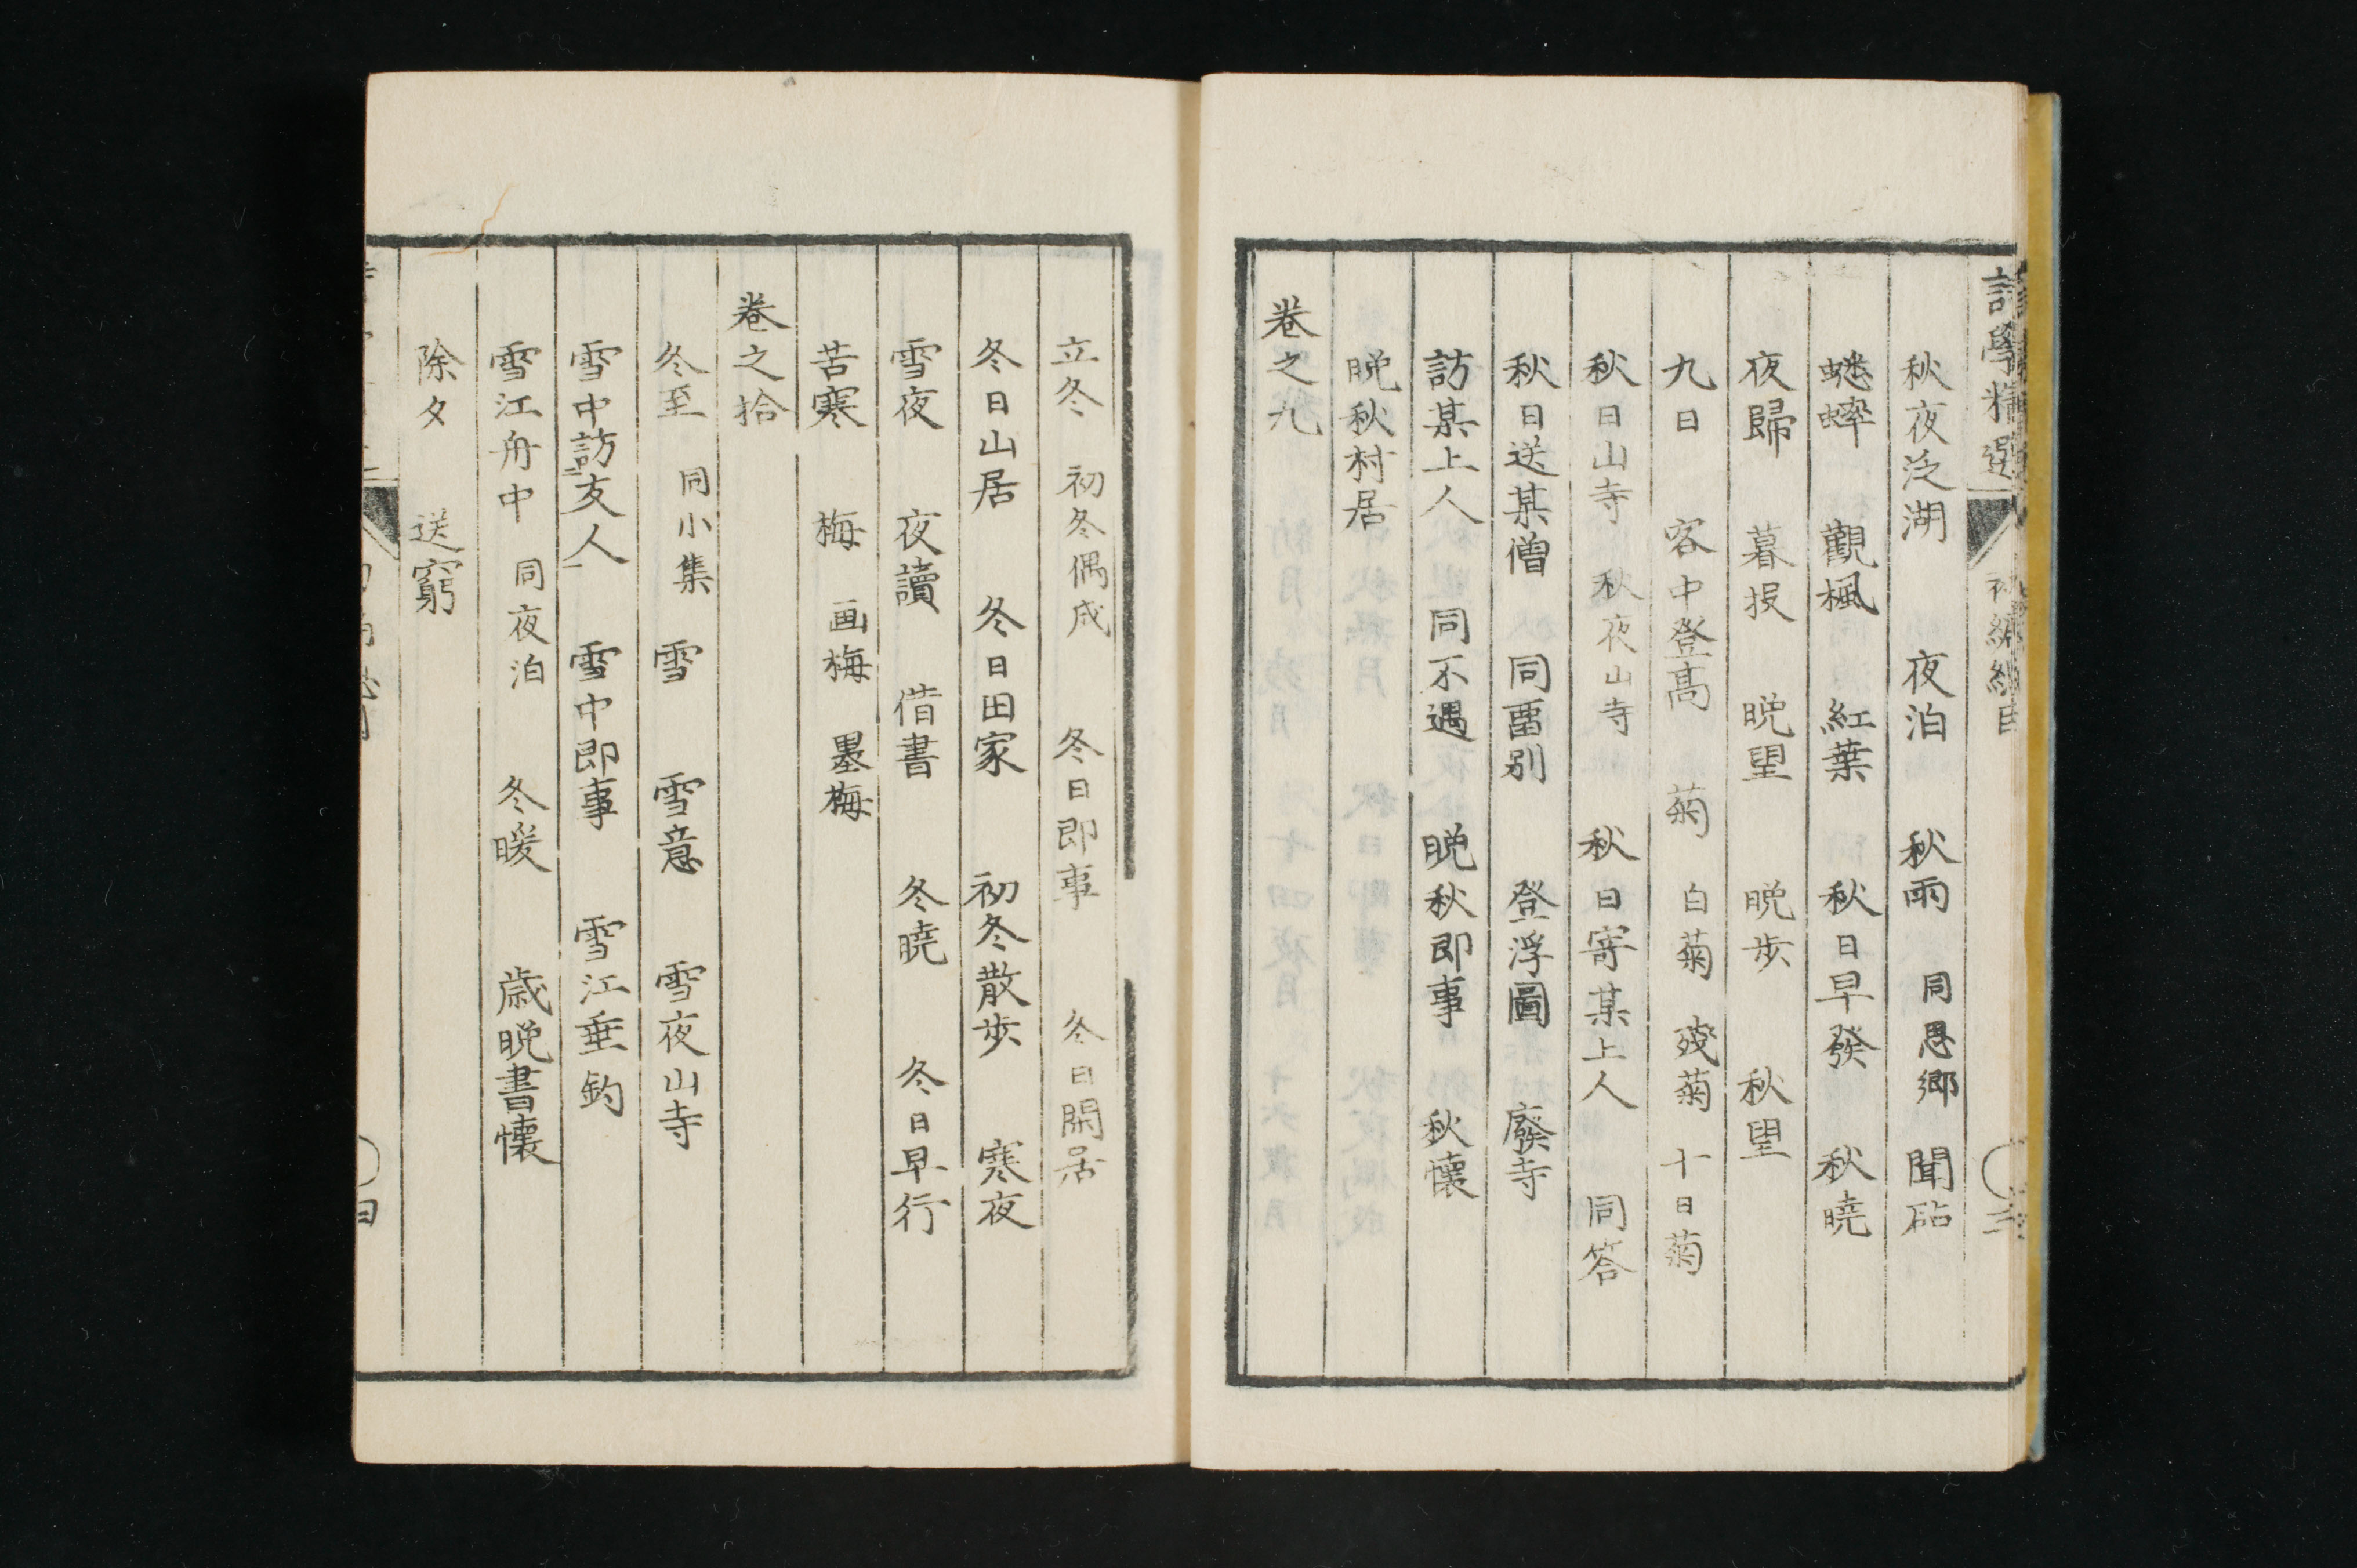 詩學精選 初編總目 三
秋夜泛湖 夜泊 秋雨 同思鄉 聞砧
蟋蟀 觀楓 紅葉 秋日早發 秋曉
夜歸 暮投 晚望 晚歩 秋望
九日 客中登髙 菊 白菊 殘菊 十日菊
秋日山寺 秋夜山寺 秋日寄某上人 同答
秋日送某僧 同畱別 登浮圖 廢寺
訪某上人 同不遇 晚秋即事 秋懷
晚秋村居
卷之九
立冬 初冬偶成 冬日即事 冬日閑居
冬日山居 冬日田家 初冬散歩 寒夜
雪夜 夜讀 借書 冬曉 冬日早行
苦寒 梅 画梅 墨梅
卷之拾
冬至 同小集 雪 雪意 雪夜山寺
雪中訪友人 雪中即事 雪江垂釣
雪江舟中 同夜泊 冬暖 歳晚書懷
除夕 送窮